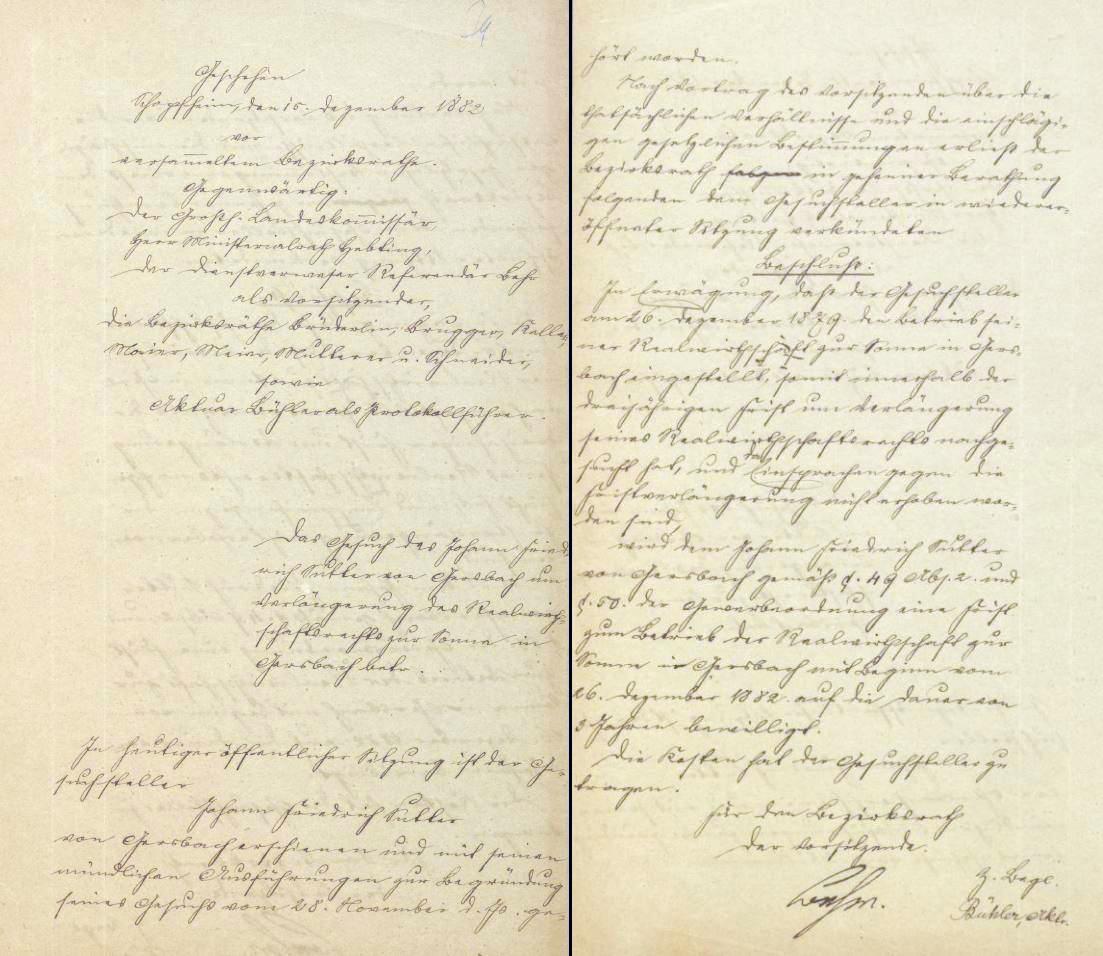 Geschehen
Schopfheim, den 15. Dezember 1882
vor
versam̅eltem Bezirksrathe.
Gegenwärtig:
Der Großh. Landeskom̅issär,
Herr Ministerialrath Hebting,
Der Dienstverweser Referendär Behr
als Vorsitzender,
die Bezirksräthe Brüderlin, Brugger, Keller,
Maier, Meier, Mutterer u. Schneider,
sowie
Aktuar Bühler als Protokollführer.
Das Gesuch des Johann Fried-
rich Sutter von Gersbach um
Verlängerung des Realwirth-
schaftsrechts zur Sonne in
Gersbach betr.
In heutiger öffentlicher Sitzung ist der Ge-
suchsteller
Johann Friedrich Sutter
von Gersbach erschienen und mit seinen
mündlichen Ausführungen zur Begründung
seines Gesuchs vom 28. November d. Js. ge-
hört worden.
Nach Vortrag des Vorsitzenden über die
thatsächlichen Verhältnisse und die einschlägi-
gen gesetzlichen Bestim̅ungen erließ der
Bezirksrath in geheimer Berathung
folgenden dem Gesuchsteller in wiederer-
öffneter Sitzung verkündeten
Beschluß:
In Erwägung, daß der Gesuchsteller
am 26. Dezember 1879 den Betrieb sei-
ner Realwirthschaft zur Sonne in Gers-
bach eingestellt, somit innerhalb der
dreijährigen Frist um Verlängerung
seines Realwirthschaftsrechts nachge-
sucht hat, und daß Einsprachen gegen die
Fristverlängerung nicht erhoben wor-
den sind,
wird dem Johann Friedrich Sutter
von Gersbach gemäß §. 49 Abs. 2. und
§. 50. der Gewerbeordnung eine Frist
zum Betrieb der Realwirthschaft zur
Sonne in Gersbach mit Beginn vom
26. Dezember 1882 auf die Dauer von
3 Jahren bewilligt.
Die Kosten hat der Gesuchsteller zu
tragen.
Für den Bezirksrath
Der Vorsitzende.
Behr.
z. Begl.
Bühler, Aktr.